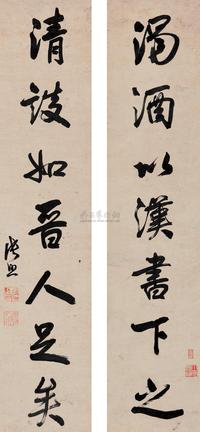 濁酒以漢書下之
清談如晋人足矣
張照